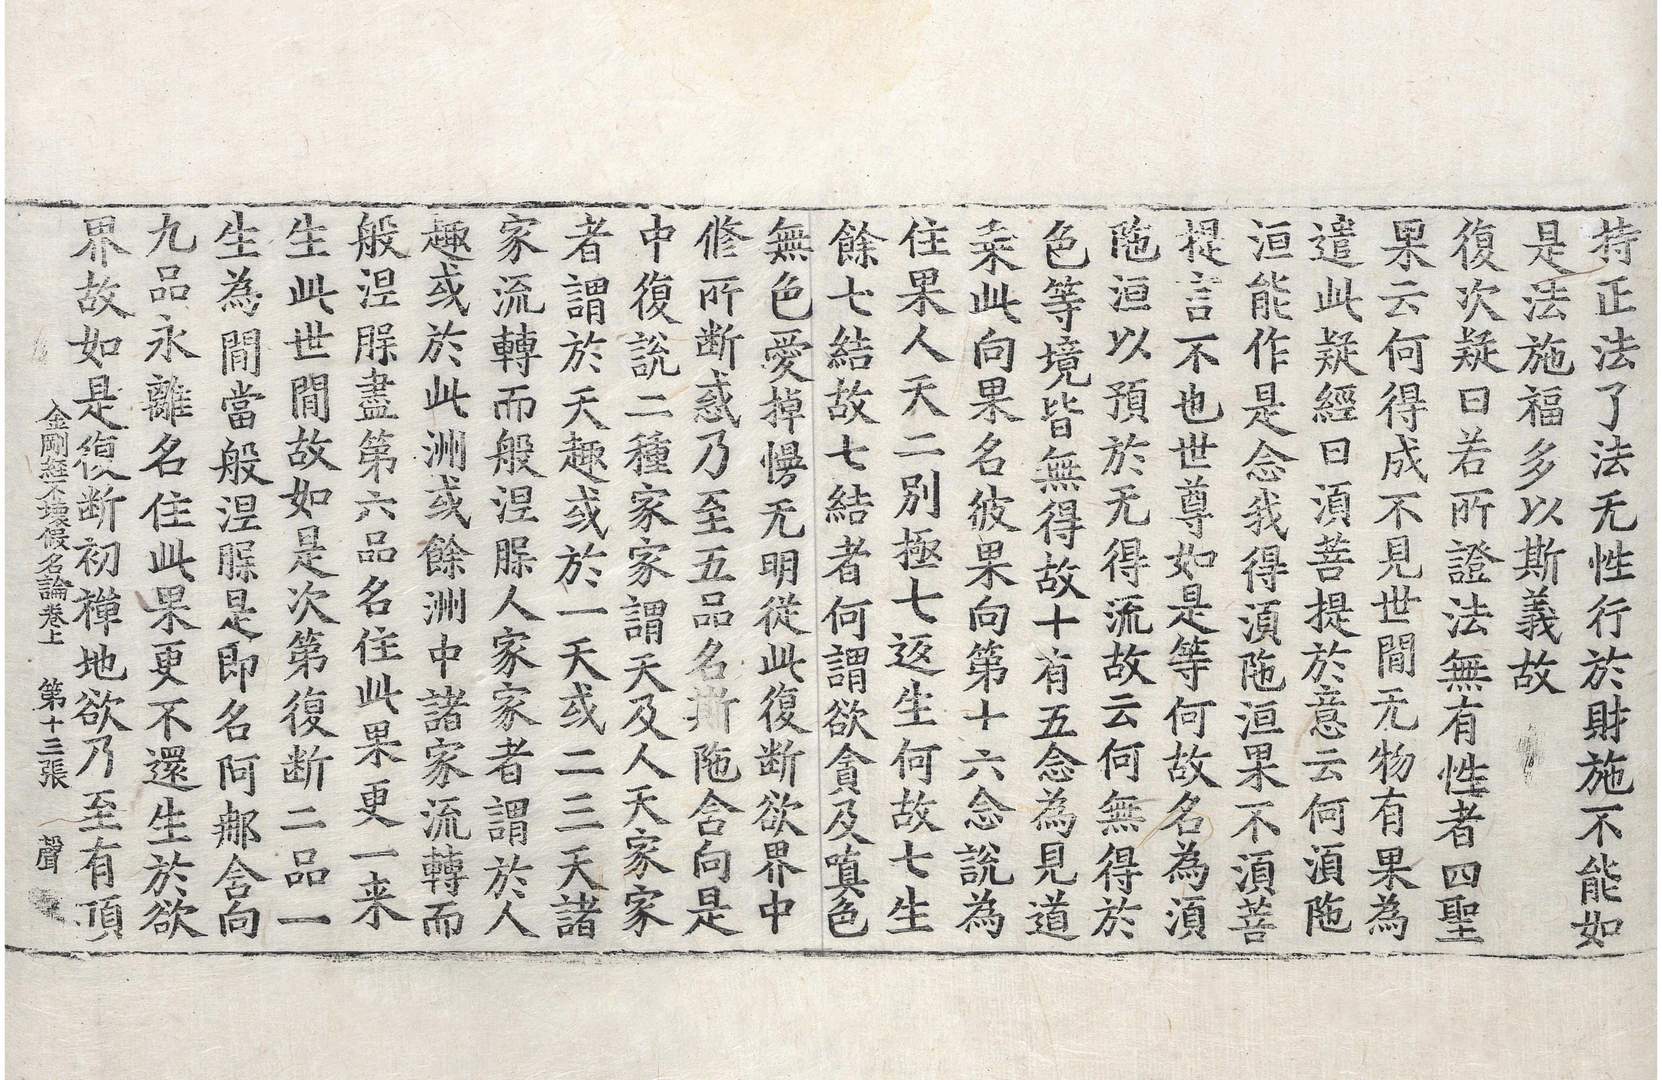 持正法了法无性行於財施不能如
是法施福多以斯義故
復次疑曰若所證法無有性者四聖
果云何得成不見世間无物有果為
遣此疑經曰湏菩提於意云何湏陁
洹能作是念我得湏陁洹果不湏菩
提言不也世尊如是等何故名為湏
陁洹以預於无得流故云何無得於
色等境皆無得故十有五念為見道
乗此向果名彼果向第十六念說為
住果人天二别極七返生何故七生
餘七結故七結者何謂欲貪及嗔色
無色愛掉慢无明從此復断欲界中
修所断惑乃至五品名斯陁含向是
中復說二種家家謂天及人天家家
者謂於天趣或於一天或二三天諸
家流轉而般涅脲人家家者謂於人
趣或於此洲或餘洲中諸家流轉而
般涅脲盡第六品名住此果更一来
生此世間故如是次第復断二品一
生為間當般涅脲是即名阿那含向
九品永離名住此果更不還生於欲
界故如是復断初禪地欲乃至有頂
金剛經不壞假名論卷上 第十三張 聲